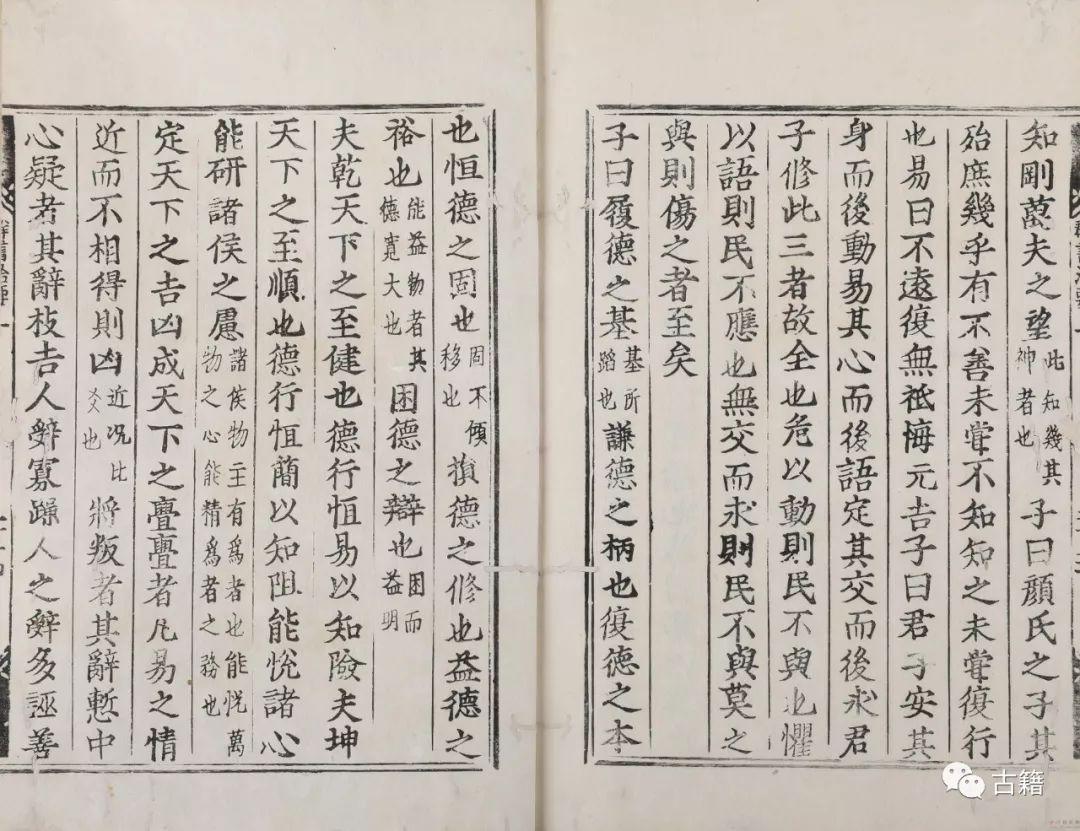 知剛萬夫之望此知幾其神者也子曰顏氏之子其
殆庶幾乎有不善未甞不知知之未甞復行
也易曰不遠復無祇悔元吉子曰君子安其
身而後動易其心而後語定其交而後求君
子修此三者故全也危以動則民不與也懼
以語則民不應也無交而求則民不與莫之
與則傷之者至矣
子曰履德之基基所蹈也謙德之柄也復德之本
也恒德之固也固不傾移也損德之修也益德之
裕也能益物者其德寬大也困德之辯也困而益明
夫乾天下之至健也德行恒易以知險夫坤
天下之至順也德行恒簡以知阻能悅諸心
能研諸侯之慮諸侯物主有爲者也能悅萬物之心能精爲者之務也
定天下之吉凶成天下之亹亹者凡易之情
近而不相得則凶近况比爻也將叛者其辭慙中
心疑者其辭枝吉人辤寡躁人之辤多誣善
古籍